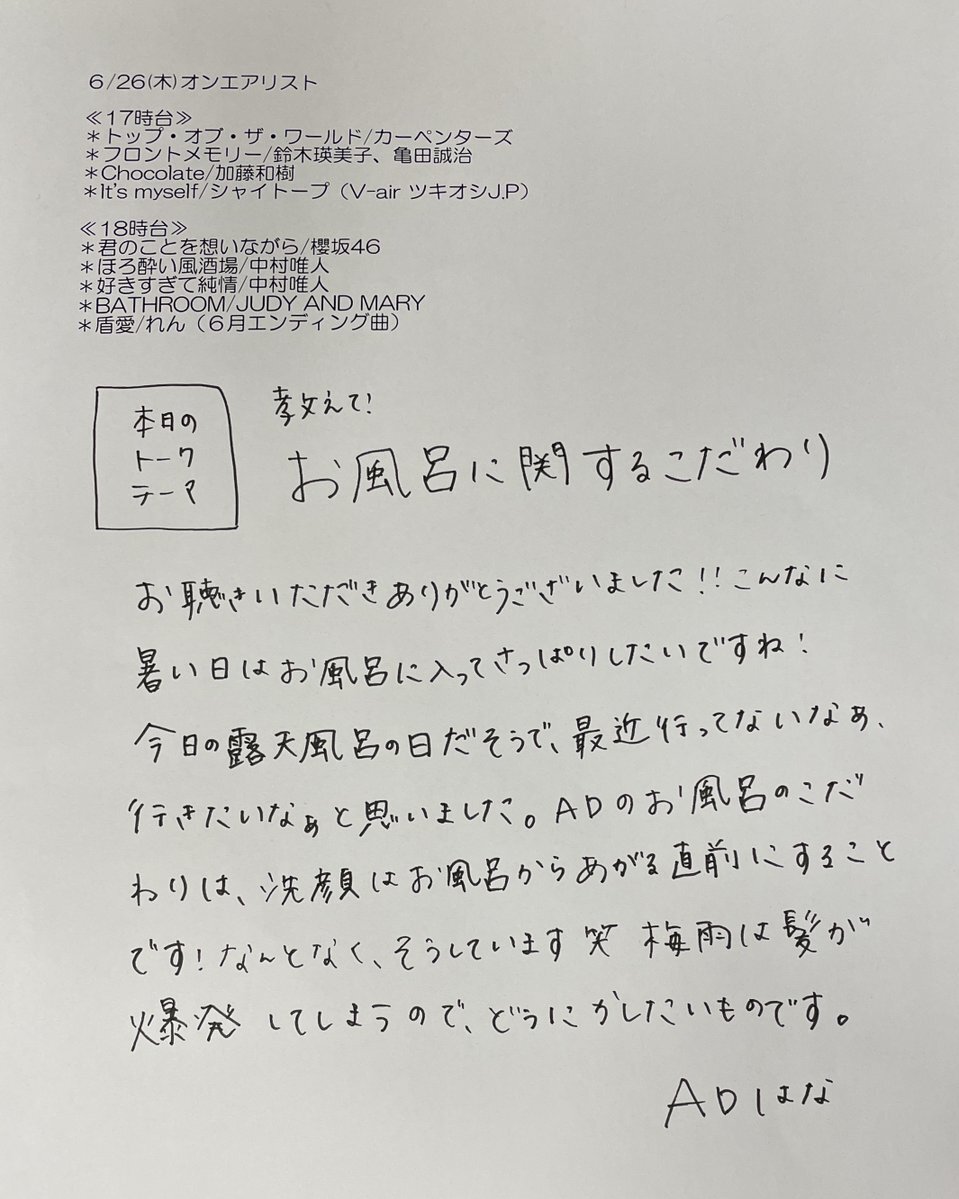 6/26(木)オンエアリスト
≪17時台≫
＊トップ・オブ・ザ・ワールド/カーペンターズ
＊フロントメモリー/鈴木瑛美子、亀田誠治
＊Chocolate/加藤和樹
＊It's myself/シャイトープ（V-air ツキオシJ.P）
≪18時台≫
＊君のことを想いながら/櫻坂46
＊ほろ酔い風酒場/中村唯人
＊好きすぎて純情/中村唯人
＊BATHROOM/JUDY AND MARY
＊盾愛/れん（６月エンディング曲）
本日の
トーク
テーマ
教えて!
お風呂に関するこだわり
お聴きいただきありがとうございました!!こんなに
暑い日はお風呂に入ってさっぱりしたいですね!
今日の露天風呂の日だそうで、最近行ってないなぁ、
行きたいなぁと思いました。ADのお風呂のこだ
わりは、洗顔はお風呂からあがる直前にすること
です!なんとなく、そうしています笑 梅雨は髪が
爆発してしまうので、どうにかしたいものです。
ADはな